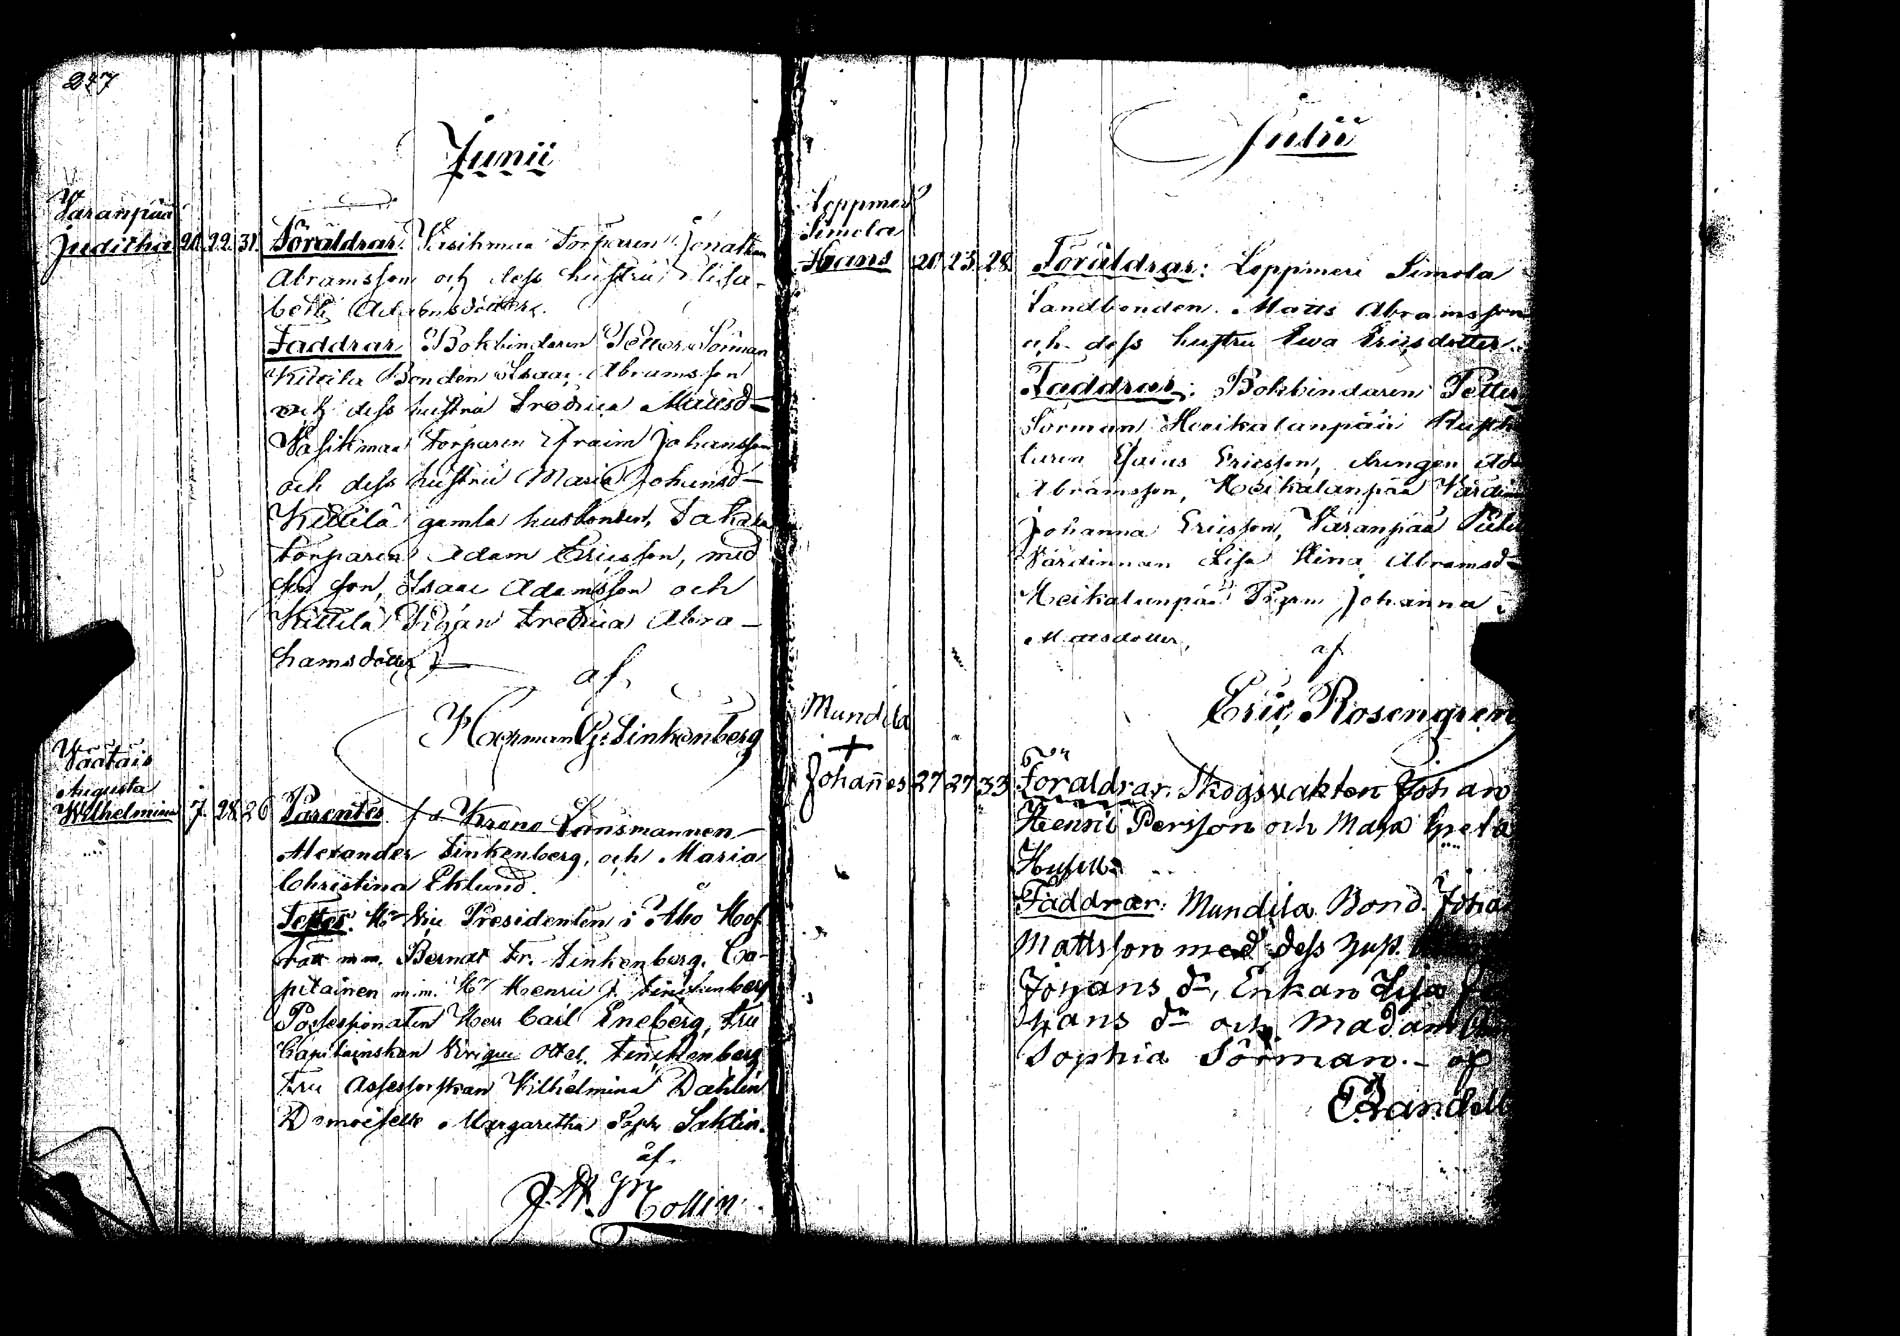 247
Junii
Varanpää
Juditha 20. 22. 31. Föräldrar: Vasikmaa Torparen Jonathan
Abramsson och dess hustru Elisa-
beth Adamsdotter.
Faddrar Bokbindaren Petter Sörman
Kittilä Bonden Isaac Abramsson
och dess hustru Fredrica Mattsd-
Vasikmaa Torparen Efraim Johansson
och dess hustru Maria Johansd-
Kittilä gamla husbonden,
torparen Adam Ericsson, med
son, Isaac Adamsson och
Kittilä Pigan Fredrica Abra-
hamsdotter
af
Herman G: Finkenberg
Väätäis
Augusta
Wilhelmina 7. 28. 26 Parentes Krono Länsmannen
Alexander Finkenberg, och Maria
Christina Eklund.
Testes. Hr Vice Presidenten i Åbo Hof
rätt m.m. Bernat Fr. Finkenberg. Ca-
pitainen m.m. Hr Henric J. Finckenberg
Possessionaten Herr Carl Eneberg, Fru
Capitainskan Finckenberg
Fru Assessorskan Wilhelmina Dahlin
Demoiselle Margaretha Soph. Sahlin.
af.
Collin
Julii
Loppmeri
Simola
Hans 20 23. 28. Föräldrar: Loppmeri Simola
Landbonden. Matts Abramsson
och dess hustru Ewa Ericsdotter.
Faddrar: Bokbindaren Petter
Sörman Heikalanpää
Esaias Ericsson, drengen
Abramsson, Heikalanpää Värdin
Johanna Ericsson, Varanpää
Värdinnan Lisa Stina Abramsd-
Heikalanpää Pigan Johanna
Matsdotter,
af
Eric Rosengren
Mundila
+
Johañes 27 27 33 Föräldrar: Skogsvakten Johan
Henric Persson och Maja Greta

Faddrar: Mundila Bond. Joha
Mattsson med dess
Johans dr, Enkan Lisa
Hans dr och Madam
Sophia Sörman. - af
Randell